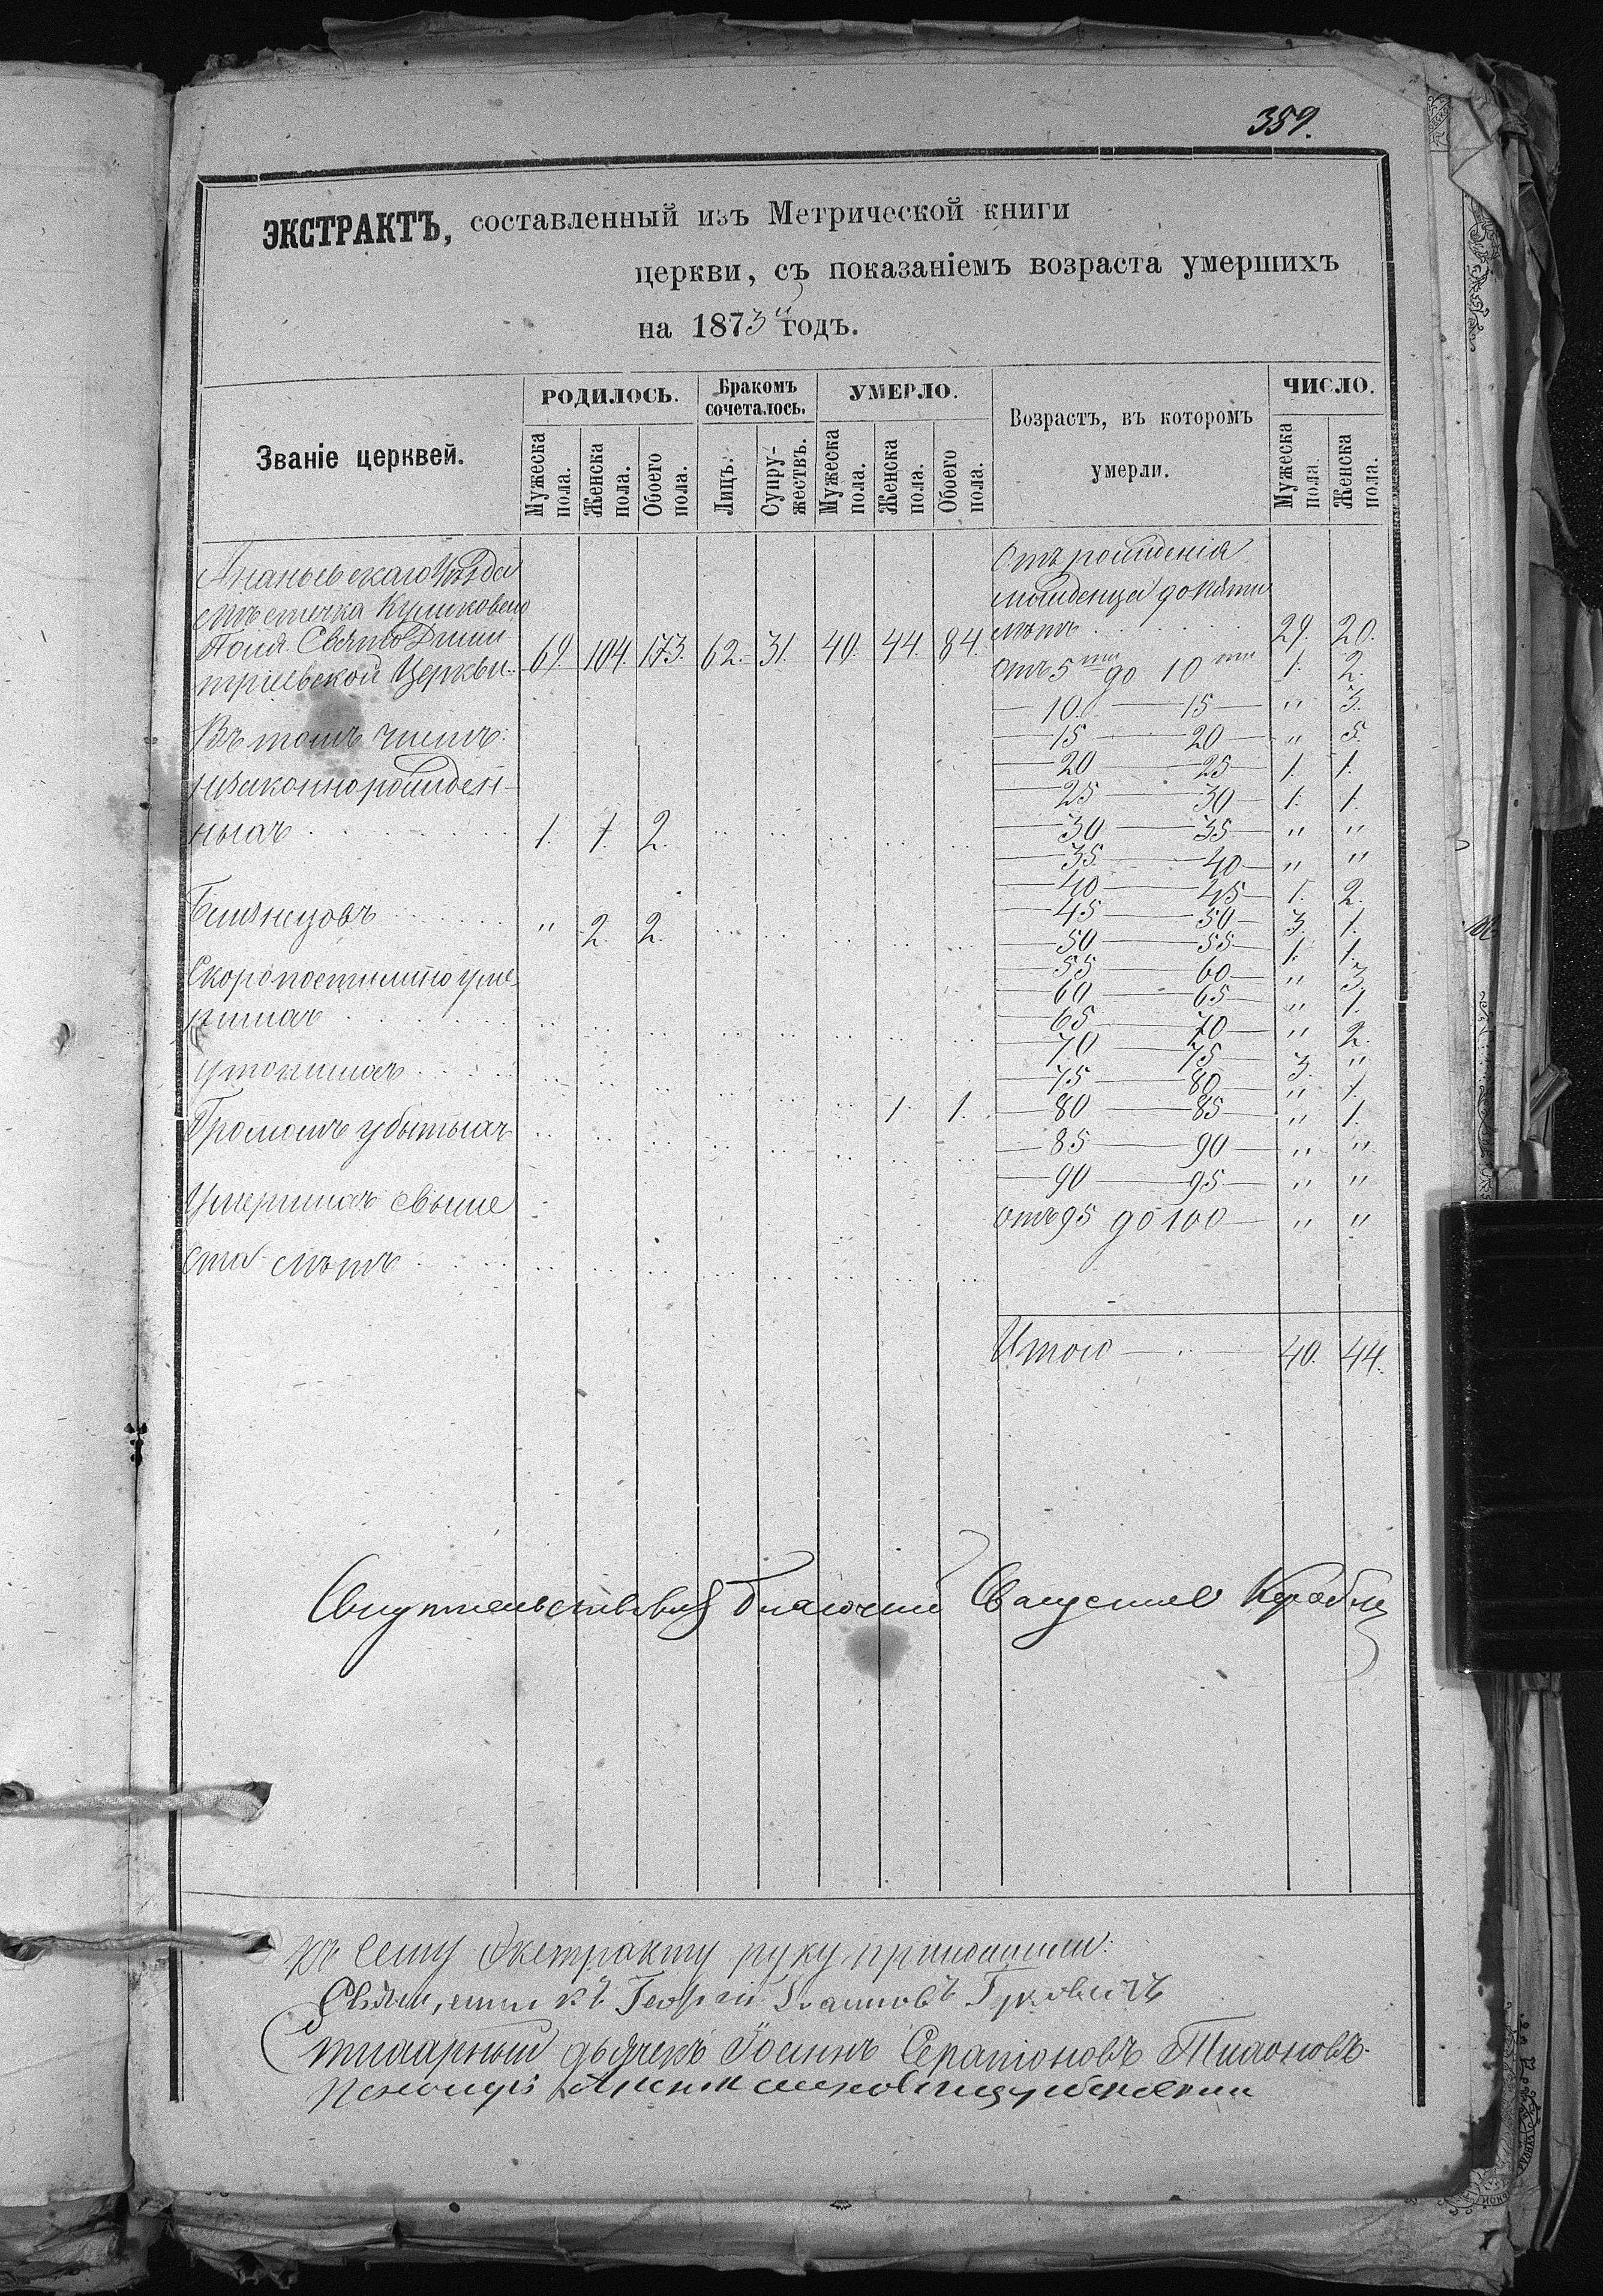 359.
ЭКСТРАКТЪ, составленный изъ Метрической книги
церкви, съ показаніемъ возраста умершихъ
на 1873й годъ.
Званіе церквей.
РОДИЛОСЬ.
Бракомъ сочеталось.
УМЕРЛО.
Возрастъ, въ которомъ умерли.
ЧИСЛО.
Мужеска пола.
Женска пола.
Обоего пола.
Лицъ.
Супружествъ.
Мужеска пола.
Женска пола.
Обоего пола.
Мужеска пола.
Женска пола.
Ананьевскаго Уѣзда
мѣстечка Куликоваго
Поля Свято Дими
тріевской Церкви 69. 104. 173. 62. 31. 40. 44. 84.
Въ томъ числѣ:
незаконнорожден-
ныхъ 1. 1. 2.
Близнецовъ " 2. 2.
Скоропостижно уме
ршихъ
утопшихъ 1. 1.
Громомъ убитыхъ
Умершихъ свыше
ста лѣтъ
Отъ рожденія
младенца до пяти
лѣтъ 29. 20.
Отъ 5ти до 10ти 1. 2.
10 — 15 " 3.
15 — 20 " 5.
20 — 25 1. 1.
25 — 30 1. 1.
30 — 35 " "
35 — 40 " "
40 — 45 1. 2.
45 — 50 3. 1.
50 — 55 1. 1.
55 — 60 " 3.
60 — 65 " 1.
65 — 70 " 2.
70 — 75 3. "
75 — 80 " 1.
80 — 85 " 1.
85 — 90 " "
90 — 95 " "
отъ 95 до 100 " "
Итого 40. 44.
благочинный
Къ сему Экстракту руку приложили:
Священникъ Георгій Гуковичъ
дьячекъ Серапіоновъ Тихоновъ.